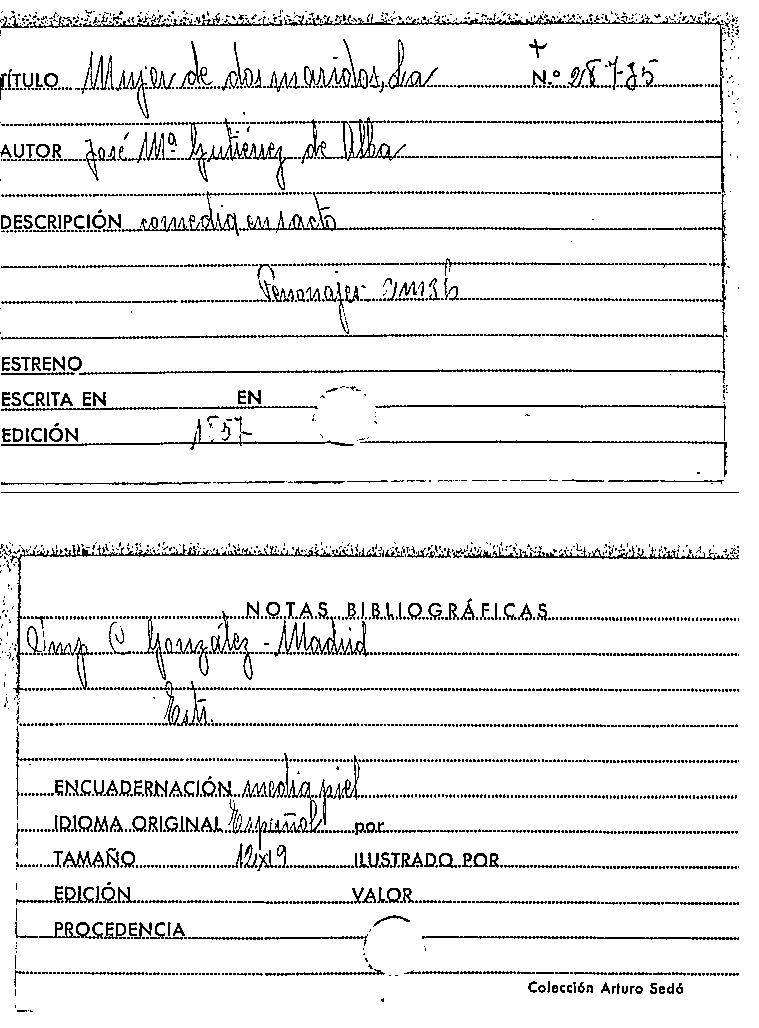 +
TÍTULO Mujer de dos maridos, La N.º 28785
AUTOR José Mª Gutiérrez de Alba
DESCRIPCIÓN comedia en 1 acto
Personajes
ESTRENO
ESCRITA EN EN
EDICIÓN 1857
NOTAS BIBLIOGRÁFICAS
Imp C González - Madrid
ENCUADERNACIÓN media piel
IDIOMA ORIGINAL Español por
TAMAÑO 12x19 ILUSTRADO POR
EDICIÓN VALOR
PROCEDENCIA
Colección Arturo Sedó